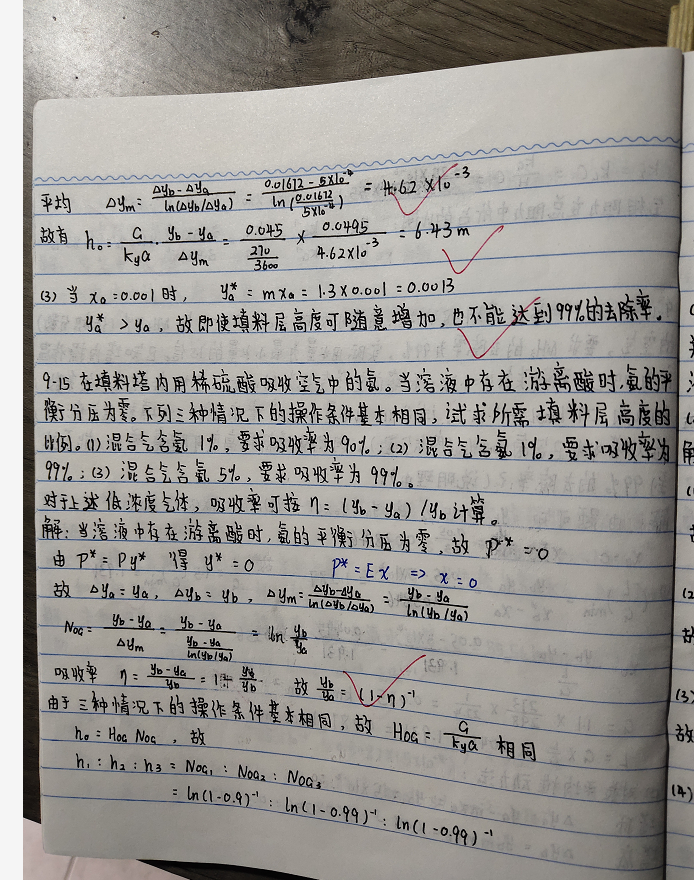 平均 Δym = (Δyb-Δya)/(ln(Δyb/Δya)) = (0.01672-5×10⁻⁴)/(ln(0.01672/5×10⁻⁴)) = 4.62×10⁻³
故有 h₀ = G/kya · (yb-ya)/Δym = 0.045/(270/3600) × 0.0495/(4.62×10⁻³) = 6.43m
(3) 当 xa=0.001时, ya* = mxa = 1.3×0.001 = 0.0013
ya* > ya, 故即使填料层高度可随意增加,也不能达到99%的去除率。
9-15 在填料塔内用稀硫酸吸收空气中的氨。当溶液中存在游离酸时,氨的平
衡分压为零。下列三种情况下的操作条件基本相同,试求所需填料层高度的
比例。(1)混合气含氨1%,要求吸收率为90%;(2)混合气含氨1%,要求吸收率为
99%;(3)混合气含氨5%,要求吸收率为99%。
对于上述低浓度气体,吸收率可按 η=(yb-ya)/yb计算。
解:当溶液中存在游离酸时,氨的平衡分压为零,故 P* = 0
由 P* = Py* 得 y* = 0 P* = Ex ⇒ x = 0
故 Δya = ya, Δyb = yb, Δym = (Δyb-Δya)/(ln(Δyb/Δya)) = (yb-ya)/(ln(yb/ya))
NOG = (yb-ya)/Δym = (yb-ya)/((yb-ya)/(ln(yb/ya))) = ln yb/ya
吸收率 η = (yb-ya)/yb = 1- ya/yb 故 yb/ya = (1-η)⁻¹
由于三种情况下的操作条件基本相同,故 HOG = G/kya 相同
h₀ = HOG NOG, 故
h₁ : h₂ : h₃ = NOG₁ : NOG₂ : NOG₃
= ln(1-0.9)⁻¹ : ln(1-0.99)⁻¹ : ln(1-0.99)⁻¹
(3)
故
(4)